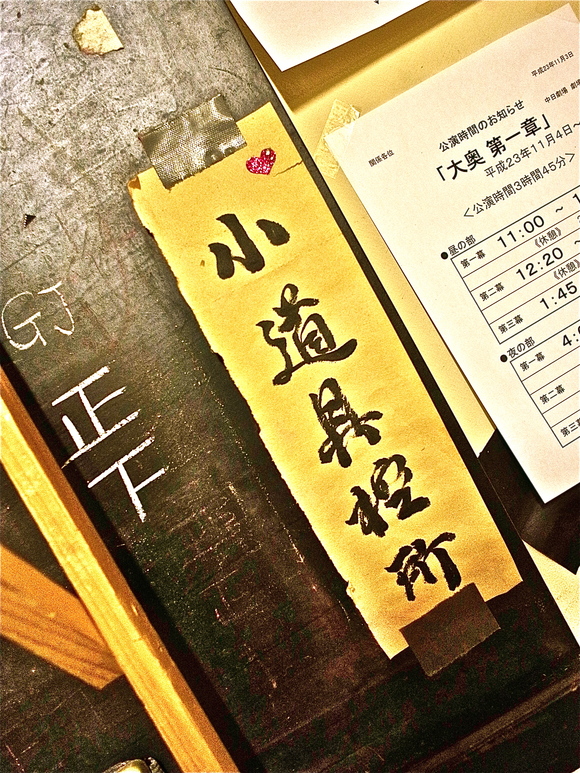 小道具控所
GJ
正
下
平成23年11月3日
中日劇場
関係各位
公演時間のお知らせ
「大奥 第一章」
平成23年11月4日～
＜公演時間3時間45分＞
●昼の部
第一幕 11:00 ～
《休憩》
第二幕 12:20
《休憩》
第三幕 1:45
●夜の部
第一幕
第二幕
第三幕